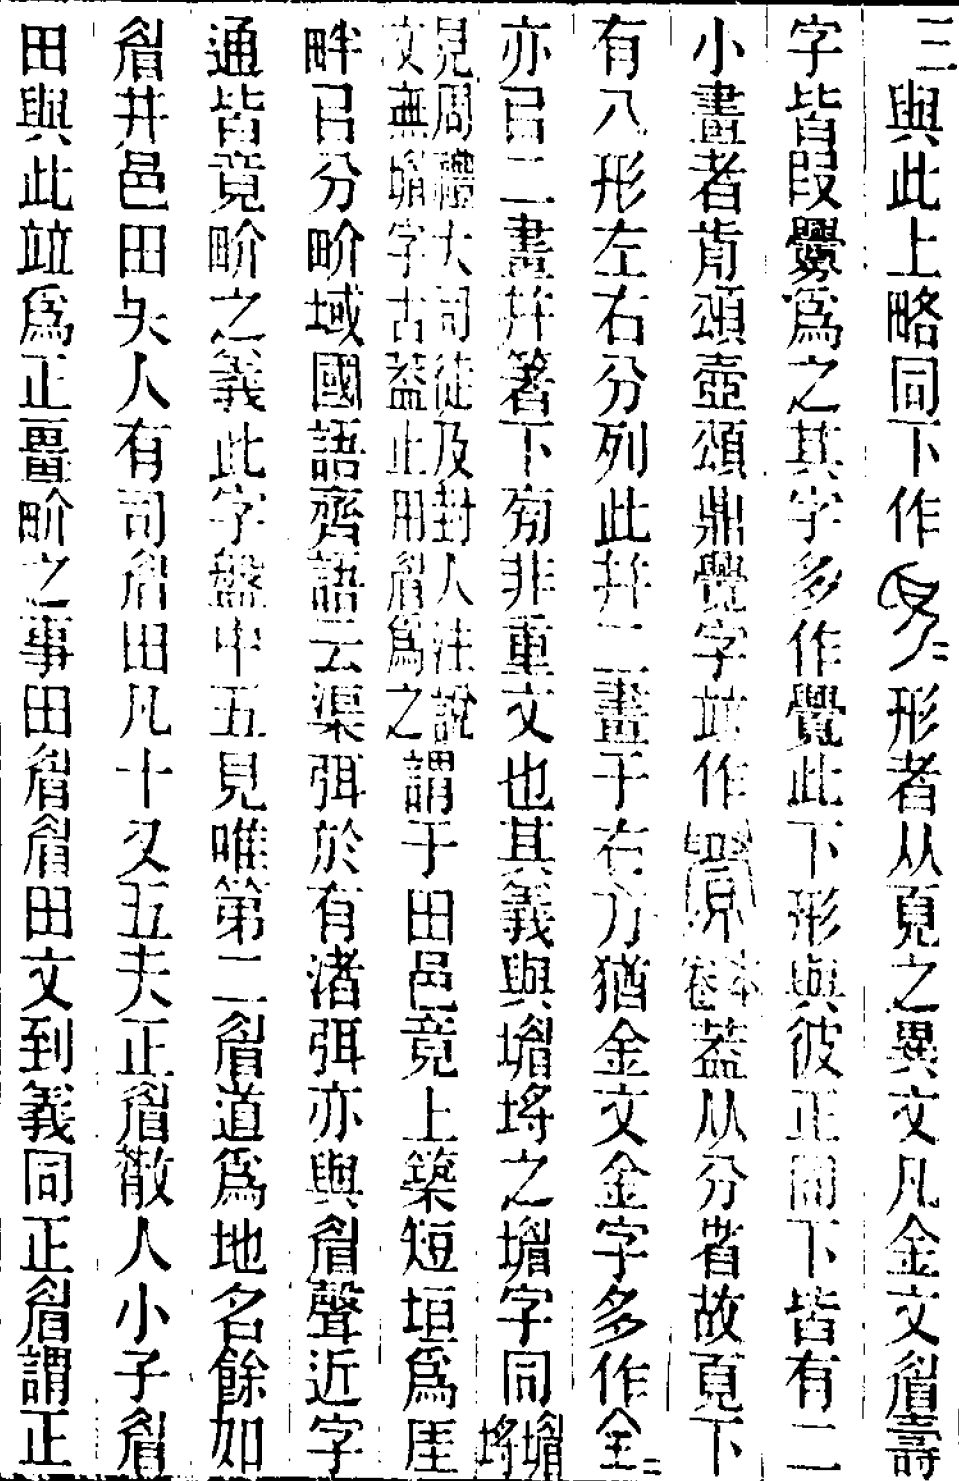 三與此上略同下作形者从䙷之異文凡金文眉壽
字皆叚釁爲之其字多作亹此下形與彼正同下皆有二
小畫者肯頌壺頌鼎亹字竝作本器蓋从分省故䙷下
有八形左右分列此幷二畫于右方猶金文金字多作全
亦㠯二畫幷箸下旁非重文也其義與堳埒之堳字同堳埒
見周禮大司徒及封人注說
文無堳字古葢止用眉爲之謂于田邑竟上築短垣爲厓
畔㠯分畍域國語齊語云渠弭於有渚弭亦與眉聲近字
通皆竟畍之義此字盤中五見唯第二眉道爲地名餘如
眉井邑田矢人有司眉田凡十又五夫正眉散人小子眉
田與此竝爲正畺畍之事田眉眉田文到義同正眉謂正